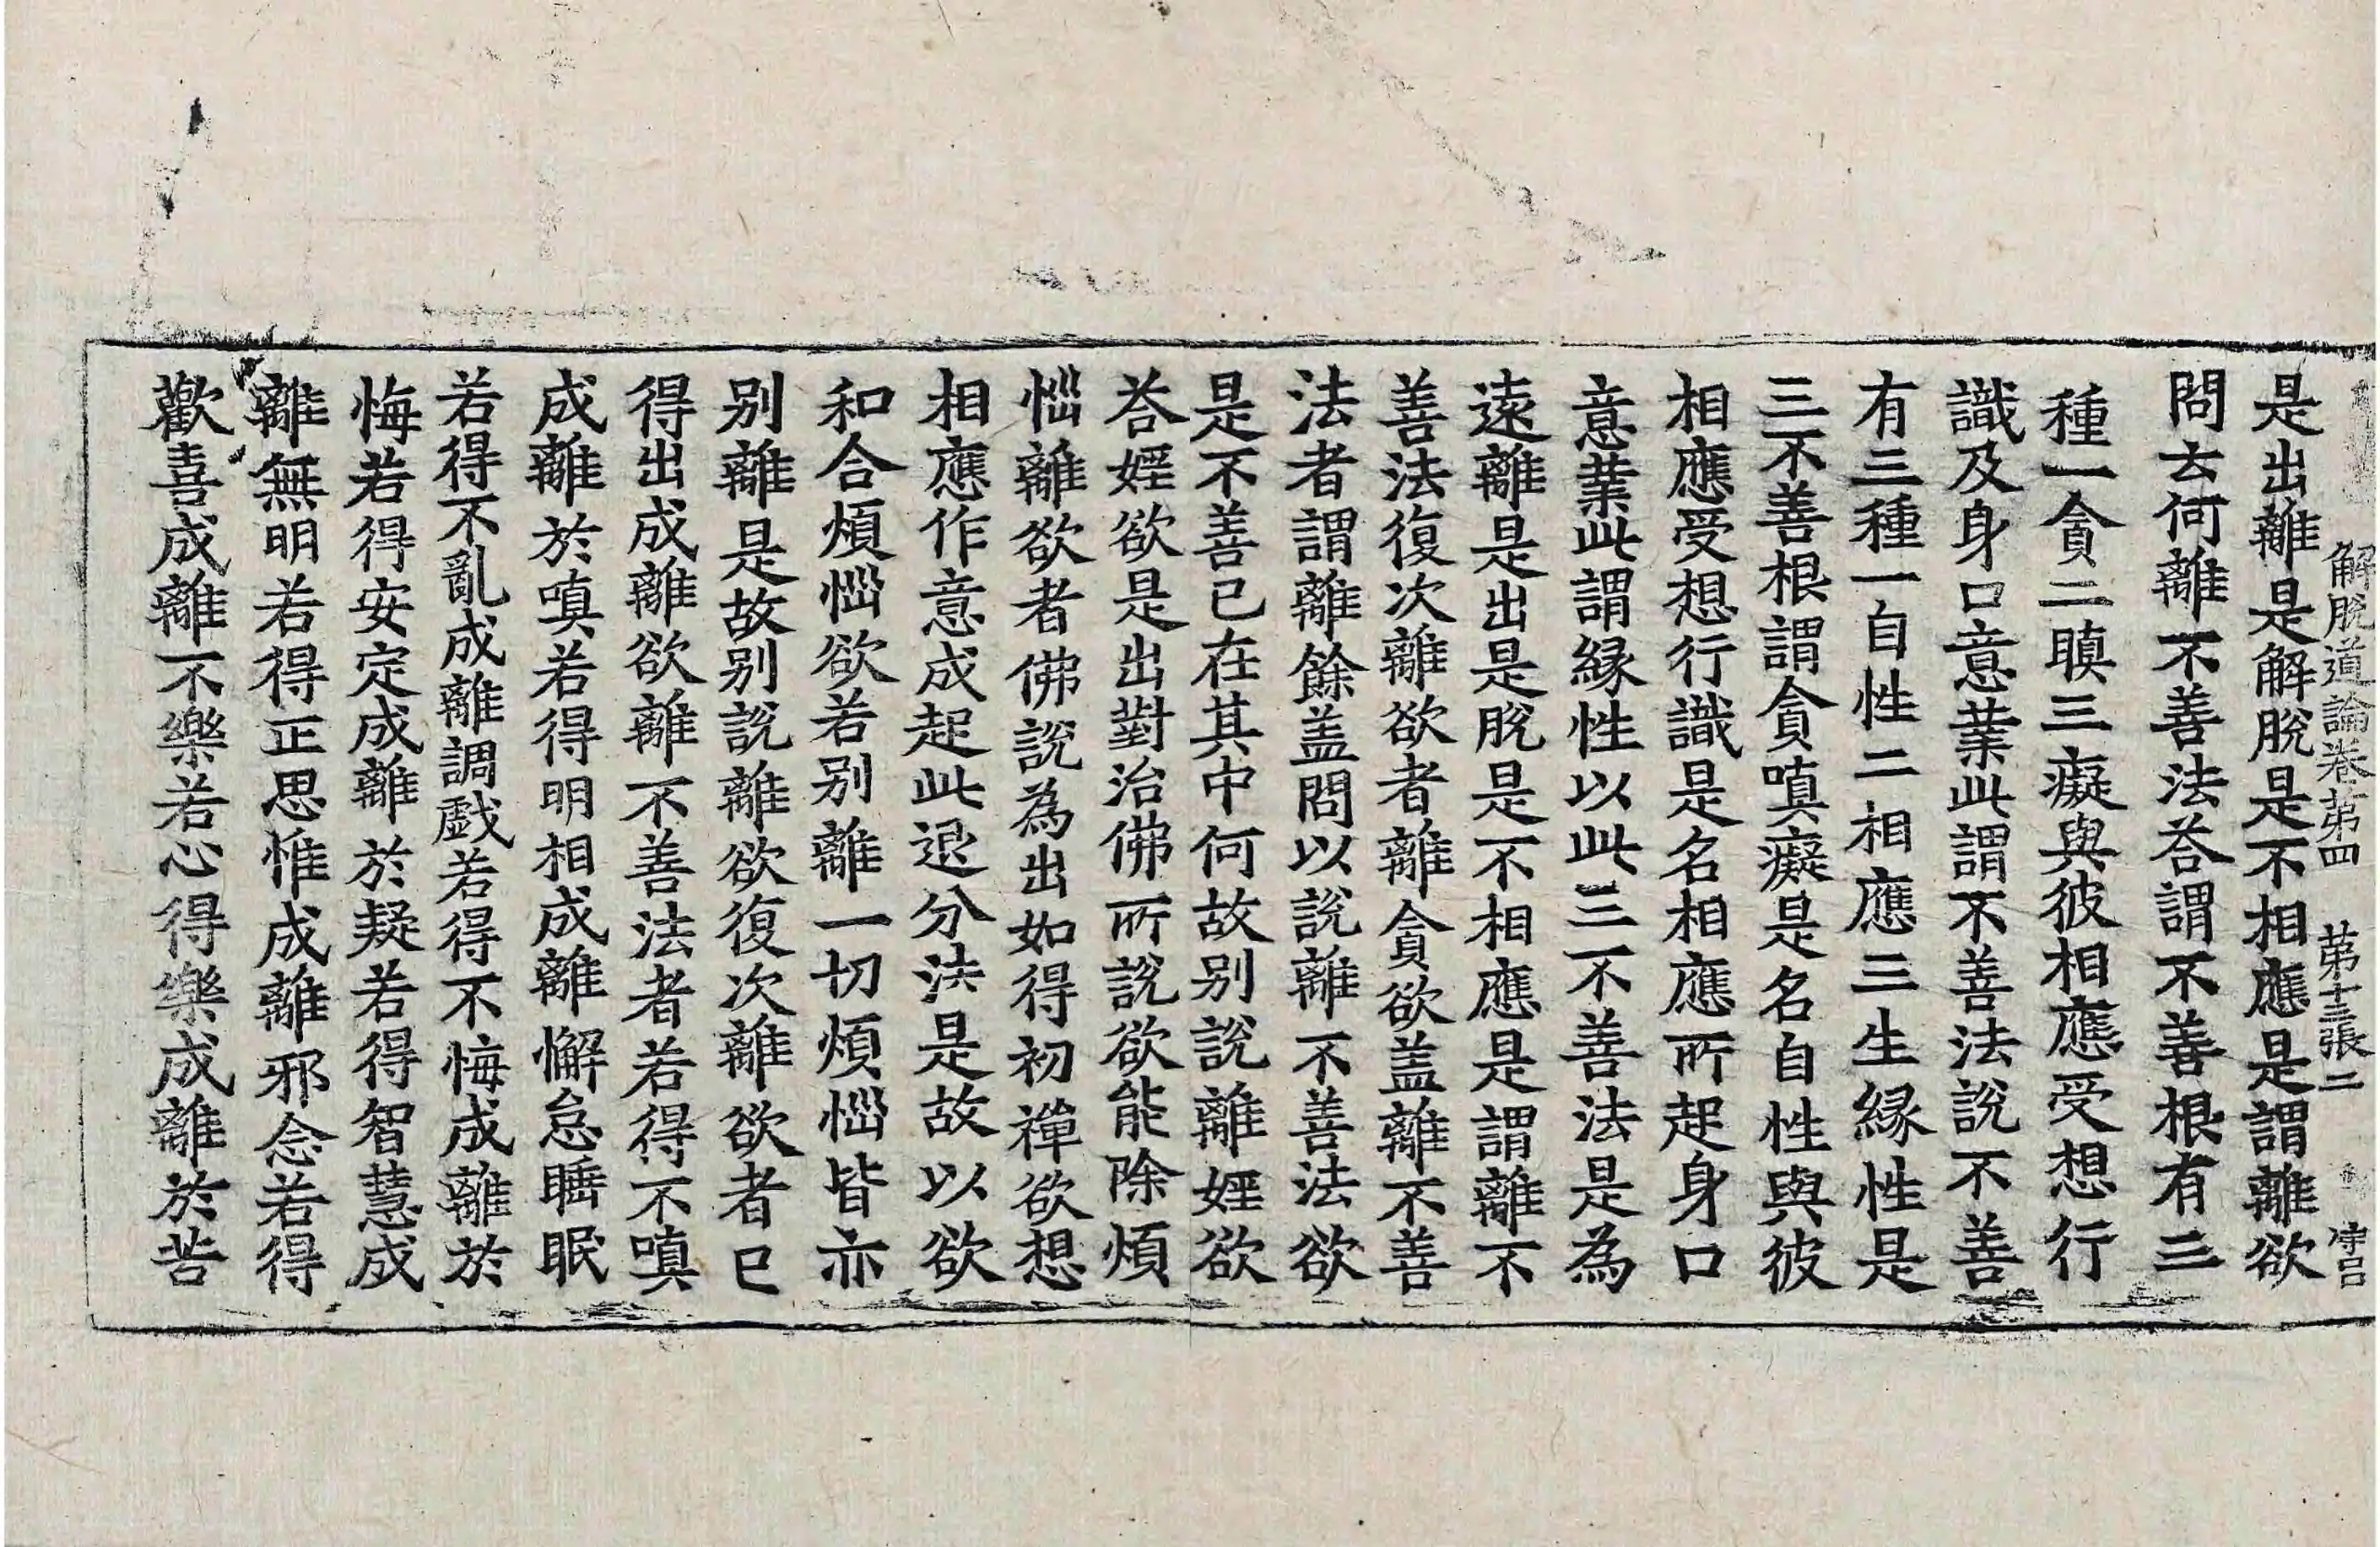 解脫道論卷第四　第十三張　二
是出離是解脫是不相應是謂離欲
問云何離不善法荅謂不善根有三
種一貪二瞋三癡與彼相應受想行
識及身口意業此謂不善法說不善
有三種一自性二相應三生緣性是
三不善根謂貪嗔癡是名自性與彼
相應受想行識是名相應所起身口
意業此謂緣性以此三不善法是為
遠離是出是脫是不相應是謂離不
善法復次離欲者離貪欲盖離不善
法者謂離餘盖問以說離不善法欲
是不善已在其中何故别說離婬欲
荅婬欲是出對治佛所說欲能除煩
惱離欲者佛說為出如得初禪欲想
相應作意成起此退分法是故以欲
和合煩惱欲若别離一切煩惱皆亦
别離是故别說離欲復次離欲者已
得出成離欲離不善法者若得不嗔
成離於嗔若得明相成離懈怠睡眠
若得不亂成離調戲若得不悔成離於
悔若得安定成離於疑若得智慧成
離無明若得正思惟成離邪念若得
歡喜成離不樂若心得樂成離於苦